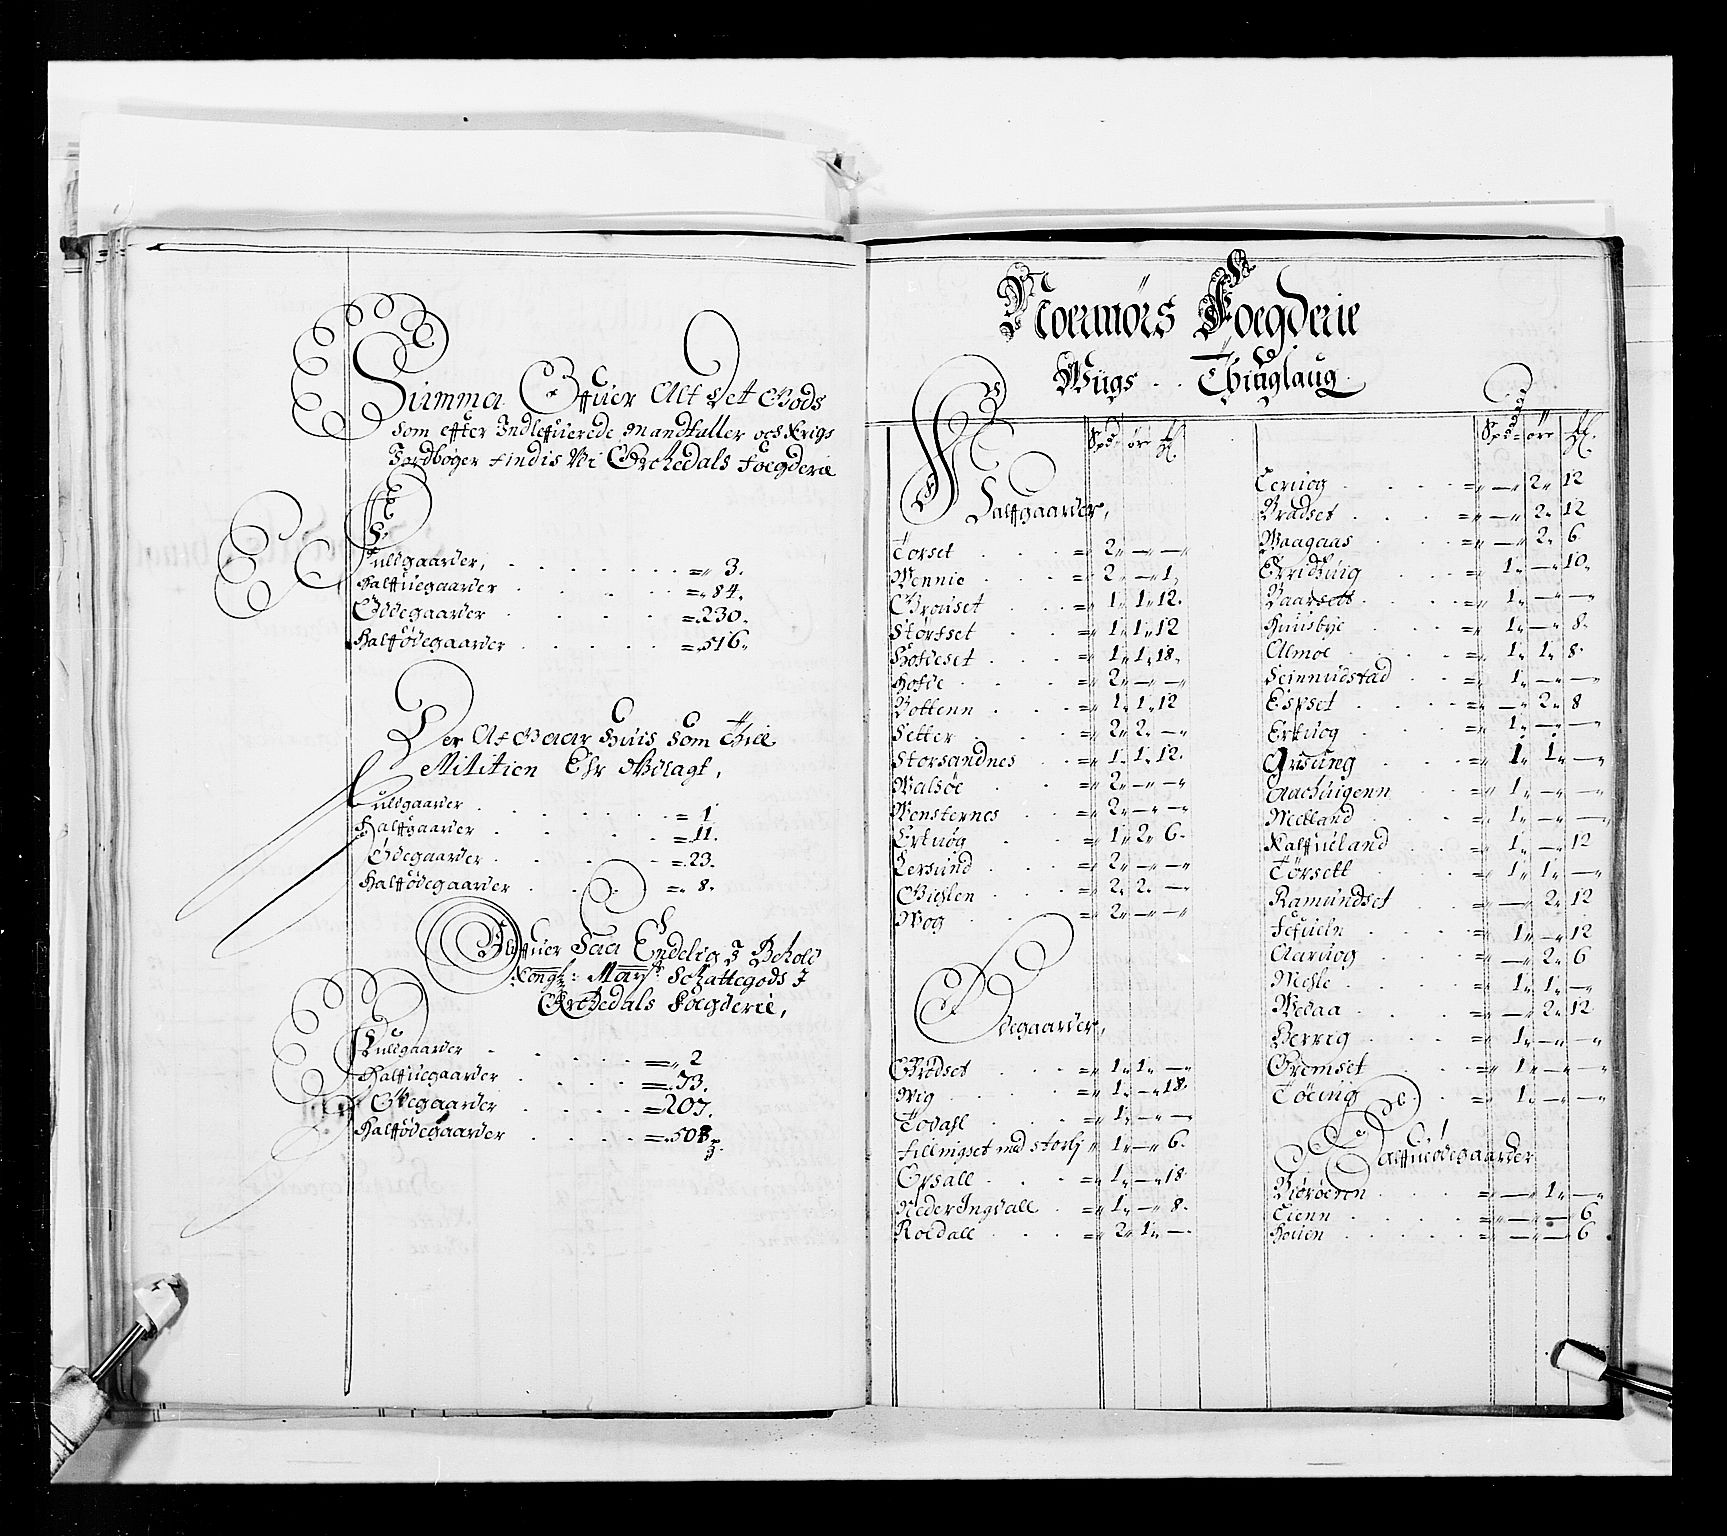 Summa Offuer Alt det Gods
som effter Indleffuerede Mandtaller och Krigs
Jordbøger findis Vdi Orchedals Foegderie
Fuldgaarder, =„ 3.
Halffuegaarder =„ 84.
Ødegaarder =„ 230.
Halffødegaarder =„ 516.
Der Af Baar Huis som Thill
Militien Ehr Ødlagt,
Fuldgaarder = 1
Halffgaarder =„ 11.
Ødegaarder =„ 23.
Halffødegaarder =„ 8.
Bliffuer Saa Endelig I Behold
Kongl: Mayts Schattegods I
Orchedals Foegderie,
Fuldgaarder =„ 2
Halffuegaarder =„ 73.
Ødegaarder = 207.
Halffødegaarder =„ 508
Noermørs Foegderie
Wiigs Thinglaug
Spd= ører
Halffgaarder,
Torset =„ 2„ —„ —„
Wennie =„ 2„ — 1„
Brouset =„ 1„ 1„ 12.
Størset =„ 1„ 1„ 12
Hofdeset =„ 1„ 1„ 18.
Hofde =„ 2„ —„ —„
Bottenn =„ 1„ 1„ 12
Setter =„ 2„ 2„ —„
Storsandnes =„ 1„ 1„ 12.
Walsøe =„ 2„ —„ —„
Wensternes =„ 2„ —„ —„
Erkuog =„ 1„ 2„ 6.
Lersund =„ 2„ —„ —„
Giellen =„ 2„ 2„ —„
Wog =„ 2„ —„ —„
Ødegaarder,
Brødset =„ 1„ 1„ —„
Wig =„ 1„ —„ 18.
Todahl =„ 1„ —„ —
Fillingset med Storlj „ 1„ —„ 6.
Orsall =„ 1„ —„ 18
Neder Ingdall =„ 1„ —„ 8.
Roldall =„ 2„ 1„ —„
Spd= ører
Leruog =„ —„ 2„ 12
Bradset =„ —„ 2„ 12
Waagaas =„ —„ 2„ 6
=„ 1„ —„ 10.
Baarsett =„ 1„ —„ —„
Huusbye =„ 1„ —„ 8.
Almoe =„ 1„ 1„ 8.
Seinnudstad =„ 1„ —„ —„
Espset =„ —„ 2„ 8
Erkuog =„ 1„ —„ —„
Grisung =„ 1„ 1„ —„
=„ 1„ —„ —„
Melland =„ 1„ —„ —„
Kalffueland =„ 1„ —„ 12
Tørsett =„ 1„ 1„ —„
Ramundset =„ —„ 2„ 12
=„ 1„ —„ 12
Aaruog =„ —„ 2„ 6
Melle =„ 1„ 1„ —„
Wedaa =„ —„ 2„ 12
Berreg =„ 1„ —„ —„
Gremset =„ 1„ —„ —„
Tøeuig =„ 1„ —„ —„
Halffuødegaarder
Biørøeren =„ —„ 1„ —„
Lienn =„ —„ —„ 6
Houen =„ —„ —„ 6